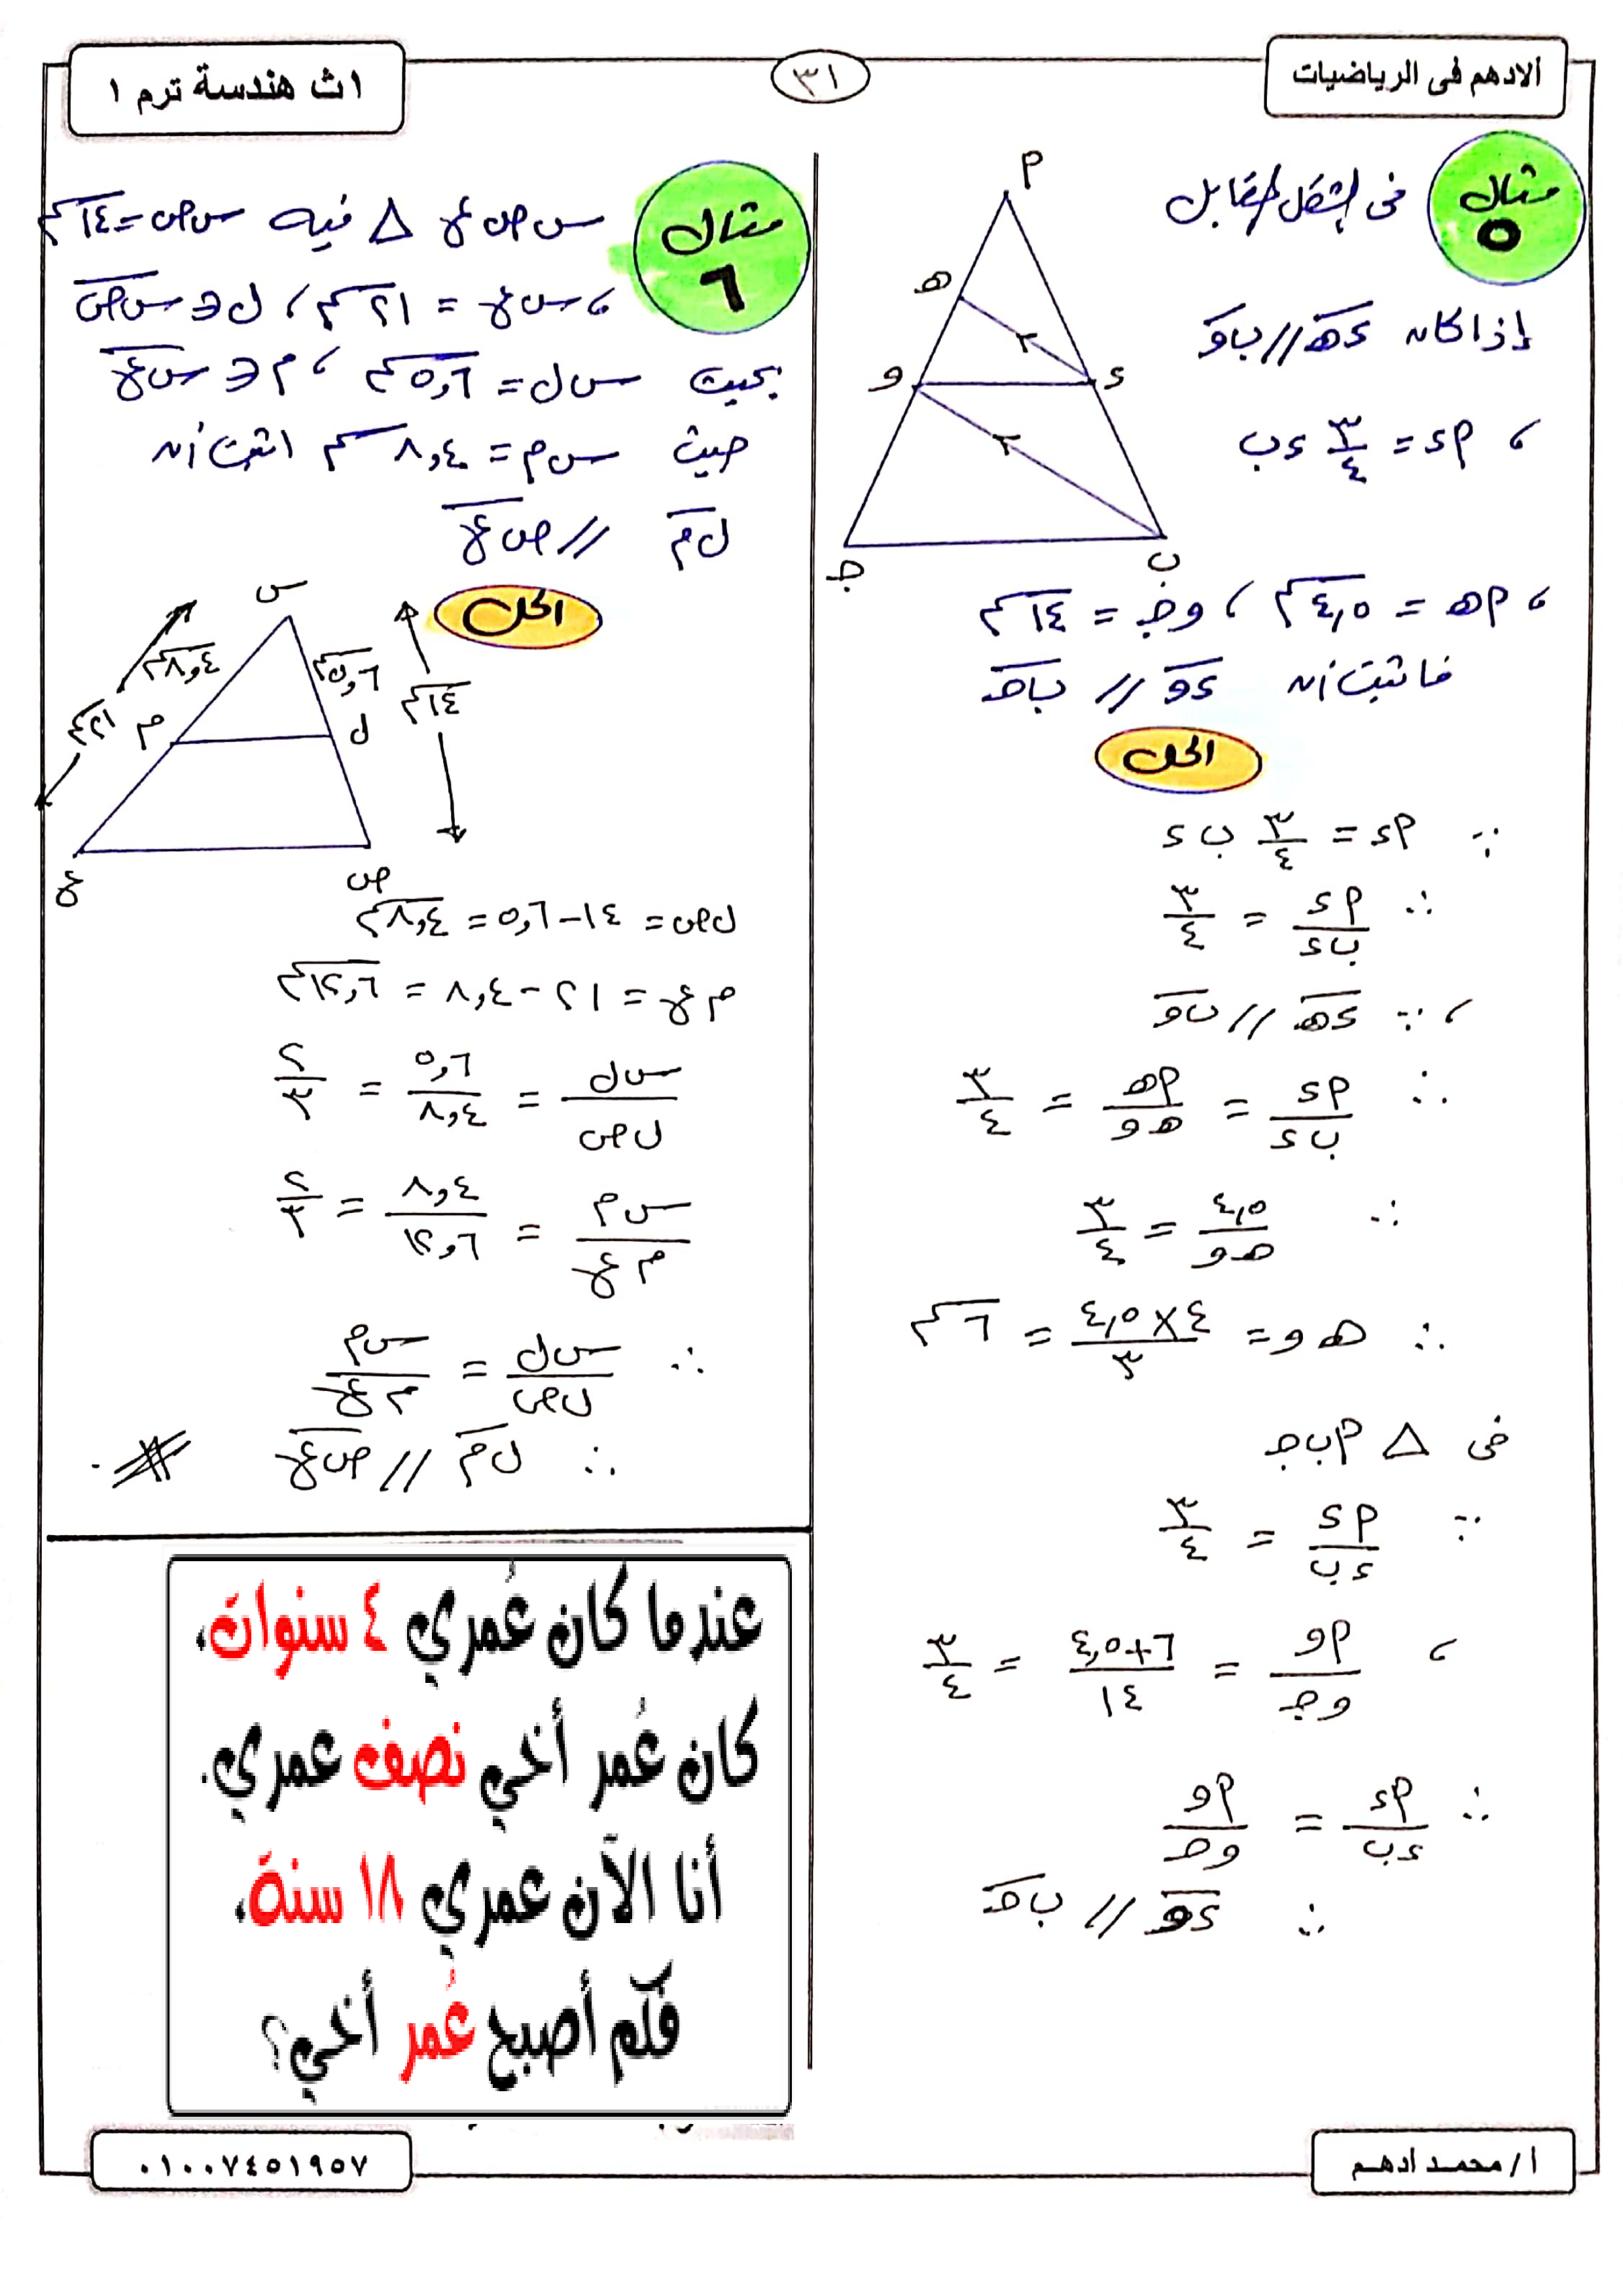 الادهم فى الرياضيات
٣١
١ث هندسة ترم ١
مثال ٥
فى الشكل المقابل
إذا كان ءهـ // بو
، أء = ٣/٤ ءب
أ
هـ
و
ء
ب
جـ
٢
٢
، أهـ = ٤,٥ سم ، وجـ = ١٤ سم
فاثبت أن ءو // بجـ
الحل
∵ أء = ٣/٤ ب ء
∴ أء/بء = ٣/٤
، ∵ ءهـ // بو
∴ أء/بء = أهـ/هـو = ٣/٤
∴ ٤,٥/هـو = ٣/٤
∴ هـ و = ٤×٤,٥/٣ = ٦ سم
فى △ أ ب جـ
∵ أء/ءب = ٣/٤
، أو/وجـ = ٦+٤,٥/١٤ = ٣/٤
∴ أء/ءب = أو/وجـ
∴ ءو // بجـ
مثال ٦
س ص ع △ فيه س ص = ١٤ سم
، س ع = ٢١ سم ، ل ∈ س ص
بحيث س ل = ٥,٦ سم ، م ∈ س ع
حيث س م = ٨,٤ سم اثبت أن
ل م // ص ع
الحل
س
٨,٤ سم
٥,٦ سم
١٤ سم
٢١ سم
م
ل
ع
ص
ل ص = ١٤ - ٥,٦ = ٨,٤ سم
م ع = ٢١ - ٨,٤ = ١٢,٦ سم
س ل/ل ص = ٥,٦/٨,٤ = ٢/٣
س م/م ع = ٨,٤/١٢,٦ = ٢/٣
∴ س ل/ل ص = س م/م ع
∴ ل م // ص ع
عندما كان عُمري ٤ سنوات،
كان عُمر أخي نصف عمري.
أنا الآن عمري ١٨ سنة،
فكم أصبح عُمر أخي؟
أ/محمد ادهم
٠١٠٠٧٤٥١٩٥٧